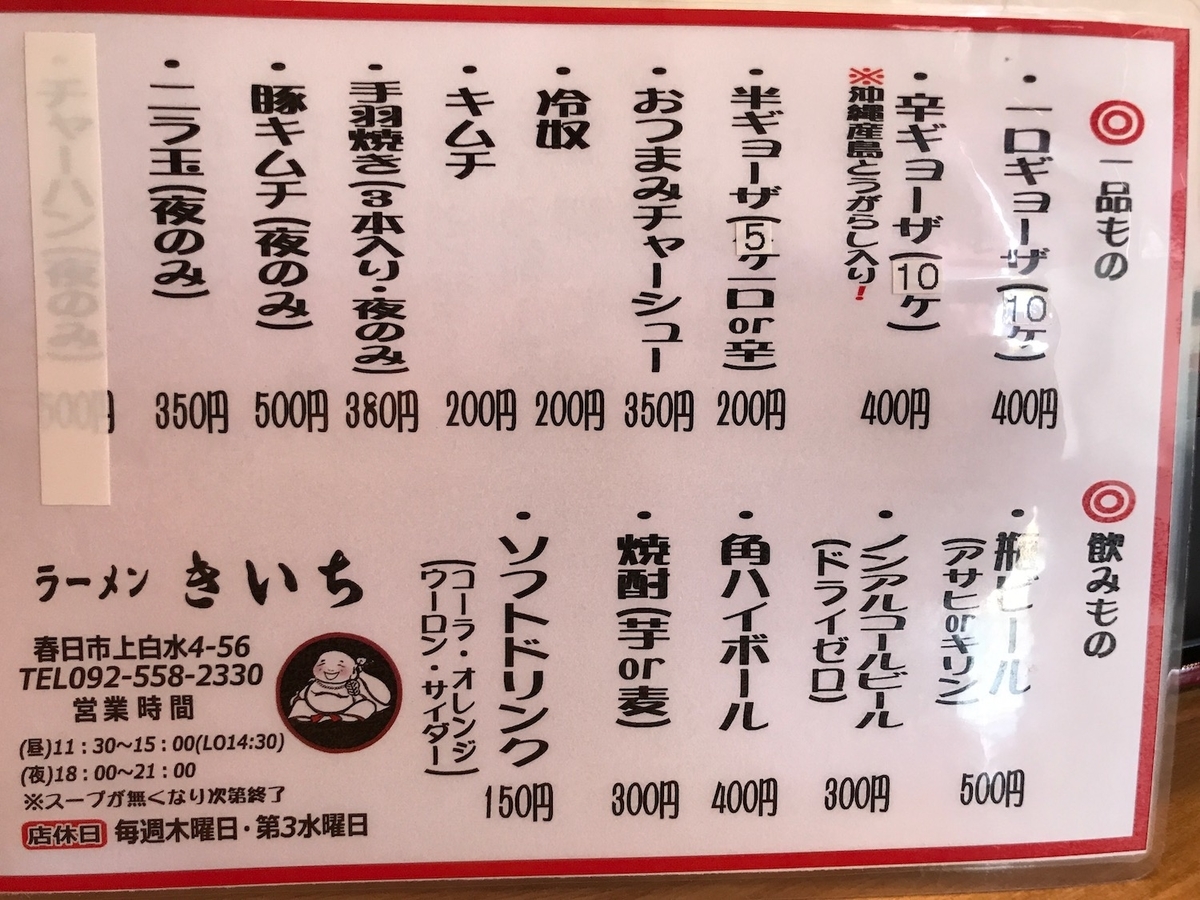 ◎一品もの
・一口ギョーザ(10ケ) 400円
・辛ギョーザ(10ケ) 400円
※沖縄産島とうがらし入り!
・半ギョーザ(5ケ一口or辛) 200円
・おつまみチャーシュー 350円
・冷奴 200円
・キムチ 200円
・手羽焼き(3本入り・夜のみ) 380円
・豚キムチ(夜のみ) 500円
・ニラ玉(夜のみ) 350円
・チャーハン(夜のみ) 500円
◎飲みもの
・瓶ビール 500円
(アサヒorキリン)
・ノンアルコールビール 300円
(ドライゼロ)
・角ハイボール 400円
・焼酎(芋or麦) 300円
・ソフトドリンク 150円
(コーラ・オレンジ
ウーロン・サイダー)
ラーメン きいち
春日市上白水4-56
TEL092-558-2330
営業時間
(昼)11:30~15:00(LO14:30)
(夜)18:00~21:00
※スープが無くなり次第終了
店休日 毎週木曜日・第3水曜日